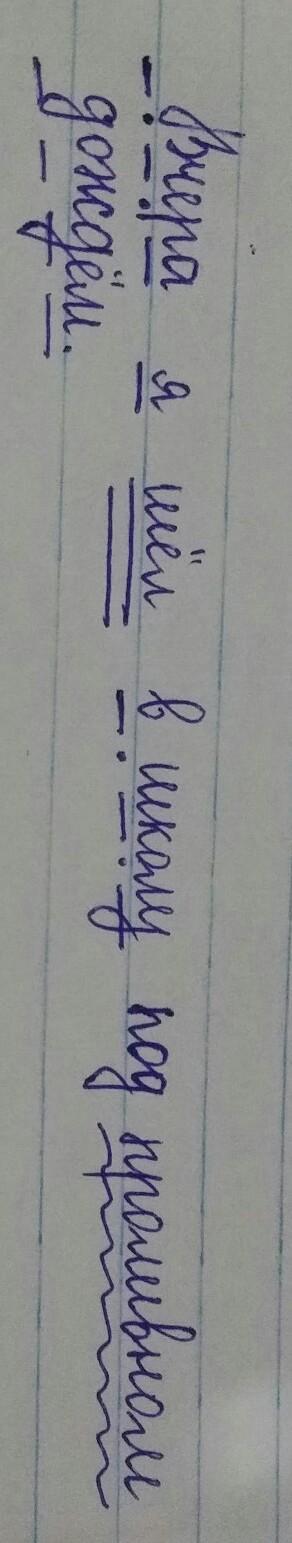 Вчера я шёл в школу под проливном
дождём.